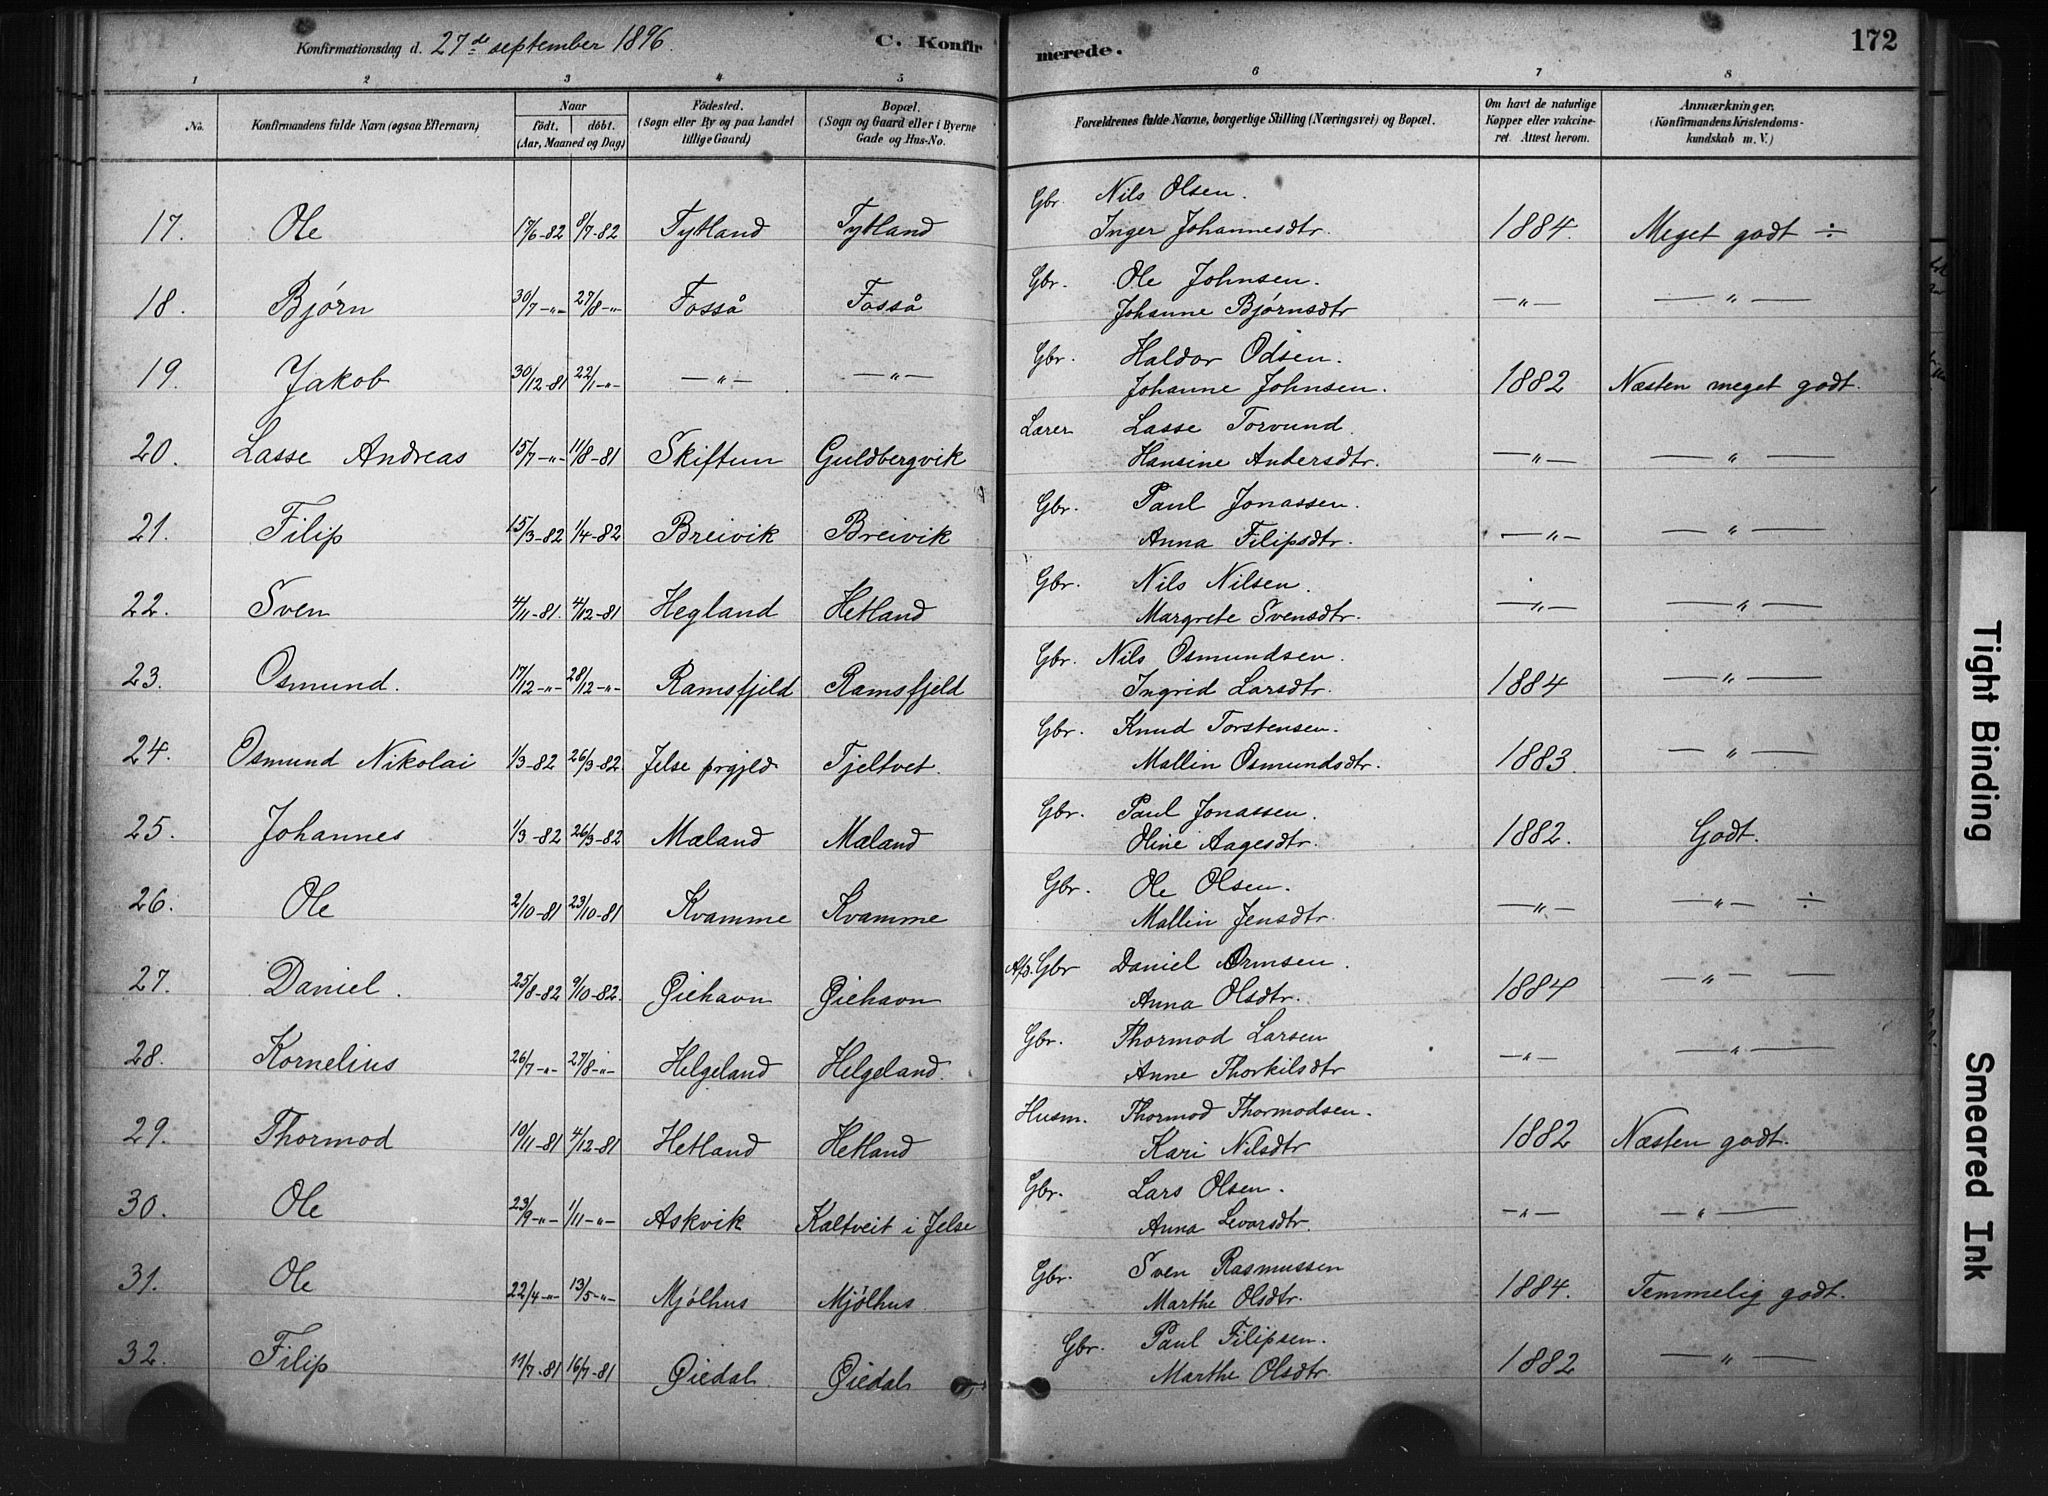 Konfirmationsdag d. 27de september 1896. C. Konfirmerede. 172
1 2 3 4 5 6 7 8
No. Konfirmandens fulde Navn (ogsaa Efternavn) Naar født. døbt. (Aar, Maaned og Dag) Fødested. (Sogn eller By og paa Landet tillige Gaard) Bopæl. (Sogn og Gaard eller i Byerne Gade og Hus-No. Forældrenes fulde Navne, borgerlige Stilling (Næringsvei) og Bopæl. Om havt de naturlige Kopper eller vakcineret. Attest herom. Anmærkninger. (Konfirmandens Kristendomskundskab m. V.)
17. Ole 17/6-82 8/7-82 Tytland Tytland Gbr. Nils Olsen. Inger Johannesdtr. 1884. Meget godt ÷
18. Bjørn 30/7-"- 27/8-"- Fosså Fosså Gbr. Ole Johnsen. Johanne Bjørnsdtr —"— —"—
19. Jakob 30/12-81 22/1-"- —"— —"— Gbr. Haldor Odsen. Johanne Johnsen. 1882 Næsten meget godt.
20. Lasse Andreas 15/7-"- 11/8-81 Skiftun Guldbergvik Lærer Lasse Torvund. Hansine Andersdtr. —"— —"—
21. Filip 15/3-82 1/4-82 Breivik Breivik Gbr. Paul Jonassen. Anna Filipsdtr. —"— —"—
22. Sven 4/11-81. 4/12-81 Hegland Hetland Gbr. Nils Nilsen. Margrete Svensdtr. —"— —"—
23. Osmund. 17/12-"- 28/12-"- Ramsfjeld Ramsfjeld Gbr. Nils Osmundsen. Ingrid Larsdtr. 1884 —"—
24. Osmund Nikolai 1/3-82 26/3-82. Jelse prgjld Tjeltvet. Gbr. Knud Torstensen. Mallin Osmundsdtr. 1883. —"—
25. Johannes 1/3-82 26/3-82 Mæland Mæland Gbr. Paul Jonassen. Oline Aagesdtr. 1882. Godt.
26. Ole 2/10-81 23/10-81 Kvamme Kvamme Gbr. Ole Olsen. Mallin Jensdtr. —"— —"— ÷
27. Daniel. 25/8-82 9/10-82. Øiehavn Øiehavn Gbr Daniel Ormsen. Anna Olsdtr. 1884 —"—
28. Kornelius 26/7-"- 27/8-"- Helgeland Helgeland. Gbr. Thormod Larsen Anne Thorkilsdtr —"— —"—
29. Thormod 19/11-81 4/12-81 Hetland Hetland Husm. Thormod Thormodsen. Kari Nilsdtr 1882 Næsten godt.
30. Ole 23/9-"- 1/11-"- Askvik Kaltveit i Jelse Gbr. Lars Olsen. Anna Levarsdtr. —"— —"—
31. Ole 22/4-"- 13/5-"- Mjølhus Mjølhus Gbr. Sven Rasmussen Marthe Olsdtr. 1884. Temmelig godt.
32. Filip 11/7-81 16/7-81 Øiedal. Øiedal Gbr. Paul Filipsen. Marthe Olsdtr. 1882 —"—
Tight Binding
Smeared Ink